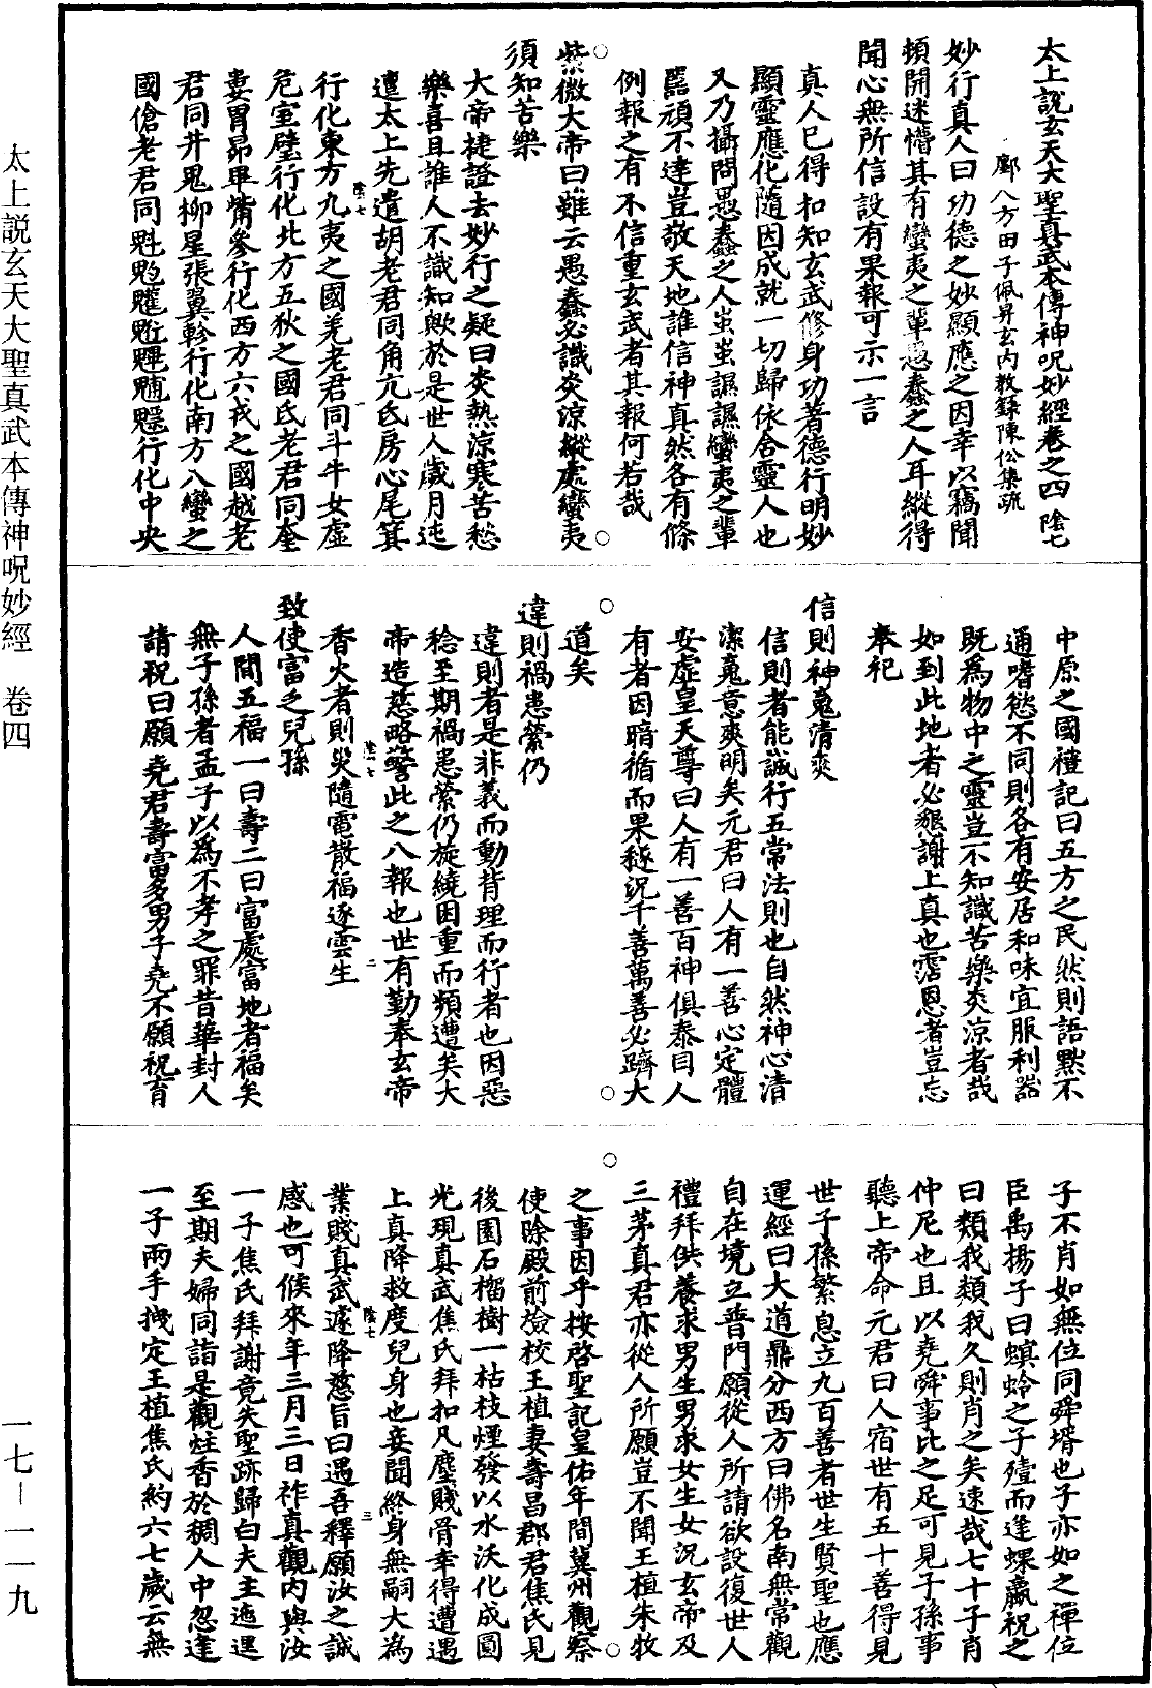 太上說玄天大聖真武本傳神呪妙經卷之四 陰七
鄺八方田子佩昇玄內教錄陳伀集疏
妙行真人曰功德之妙顯應之因幸以竊聞
頓開迷懵其有蠻夷之輩愚蠢之人耳縱得
聞心無所信設有果報可示一言
真人已得扣知玄武修身功著德行明妙
顯靈應化隨因成就一切歸依含靈人也
又乃攝問愚蠢之人蚩蚩譅譅蠻夷之輩
嚚頑不達豈敬天地誰信神真然各有條
例報之有不信重玄武者其報何若哉
紫微大帝曰雖云愚蠢必識炎涼縱處蠻夷
須知苦樂
大帝捷證去妙行之疑曰炎熱涼寒苦愁
樂喜且誰人不識知歟於是世人歲月迍
邅太上先遣胡老君同角亢氐房心尾箕
行化東方九夷之國羌老君同斗牛女虛
危室壁行化北方五狄之國氐老君同奎
婁胃昴畢觜參行化西方六戎之國越老
君同井鬼柳星張翼軫行化南方八蠻之
國傖老君同魁𩲃䰢魓行化中央
中原之國禮記曰五方之民然則語默不
通嗜慾不同則各有安居和味宜服利器
既為物中之靈豈不知識苦樂炎涼者哉
如到此地者必懇謝上真也霑恩者豈忘
奉祀
信則神䰟清爽
信則者能誠行五常法則也自然神心清
潔䰟意爽明矣元君曰人有一善心定體
安虛皇天尊曰人有一善百神俱泰目人
有者因暗循而果穟況千善萬善必躋大
道矣
違則禍患縈仍
違則者是非義而動背理而行者也因惡
稔至期禍患縈仍旋繞困重而頻遭矣大
帝造慈略警此之八報也世有勤奉玄帝
香火者則災隨電散福逐雲生
致使富之兒孫
人間五福一曰壽二曰富處富地者福矣
無子孫者孟子以為不孝之罪昔華封人
請祝曰願堯君壽富多男子堯不願祝育
子不肖如無位同舜壻也子亦如之禪位
臣禹揚子曰螟蛉之子殪而逢蜾蠃祝之
曰類我類我久則肖之矣速哉七十子肖
仲尼也且以堯舜事比之足可見子孫事
聽上帝命元君曰人宿世有五十善得見
世子孫繁息立九百善者世生賢聖也應
運經曰大道鼎分西方曰佛名南無常觀
自在境立普門願從人所請欲設復世人
禮拜供養求男生男求女生女況玄帝及
三茅真君亦從人所願豈不聞王植朱牧
之事因乎按啓聖記皇佑年間冀州觀察
使除殿前撿校王植妻壽昌郡君焦氏見
後園石榴樹一枯枝煙發以水沃化成圓
光現真武焦氏拜扣凡塵賤骨幸得遭遇
上真降救度兒身也妾聞終身無嗣大為
業賤真武遂降慈旨曰遇吾釋願汝之誠
感也可候來年三月三日祚真觀內與汝
一子焦氏拜謝竟失聖跡歸白夫主迤邐
至期夫婦同詣是觀炷香於稠人中忽逢
一子兩手拽定王植焦氏約六七歲云無
太上說玄天大聖真武本傳神呪妙經 卷四
一七—一一九